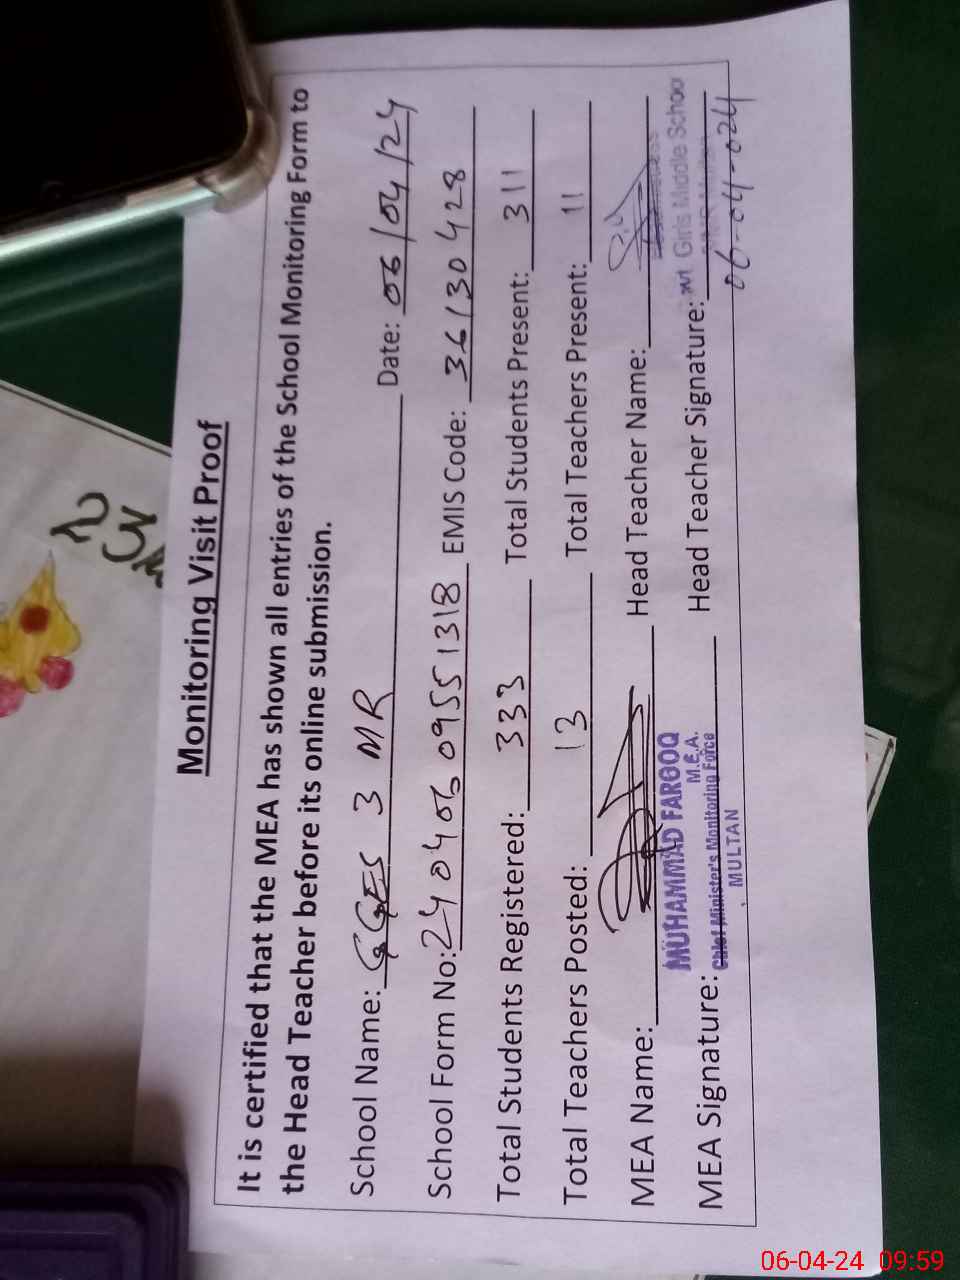 Monitoring Visit Proof
It is certified that the MEA has shown all entries of the School Monitoring Form to
the Head Teacher before its online submission.
School Name: GGES 3 MR Date: 06/04/24
School Form No: 240406 0955 1318 EMIS Code: 36130428
Total Students Registered: 333 Total Students Present: 311
Total Teachers Posted: 13 Total Teachers Present: 11
MEA Name: Head Teacher Name:
MUHAMMAD FAROOQ
M.E.A.
Chief Minister's Monitoring Force
MULTAN
MEA Signature: Head Teacher Signature:
Girls Middle School
06-04-024
23
06-04-24 09:59